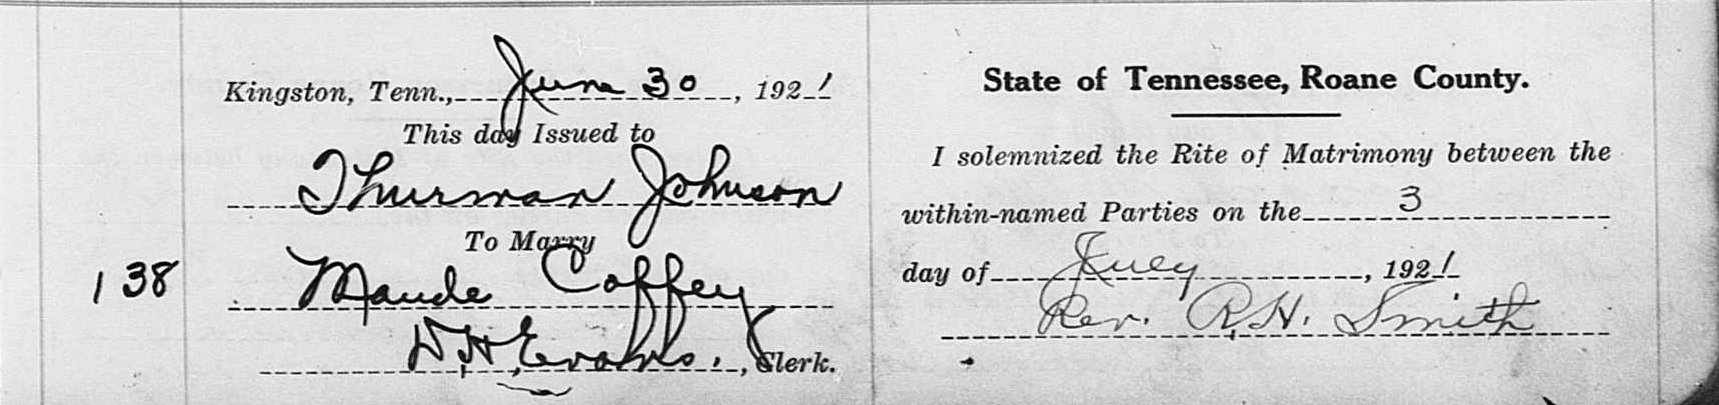 Kingston, Tenn., June 30, 1921
This day Issued to
Thurman Johnson
To Marry
138 Maude Coffey
W.H. Evans., Clerk.
State of Tennessee, Roane County.
I solemnized the Rite of Matrimony between the
within-named Parties on the 3
day of July, 1921
Rev. R.H. Smith